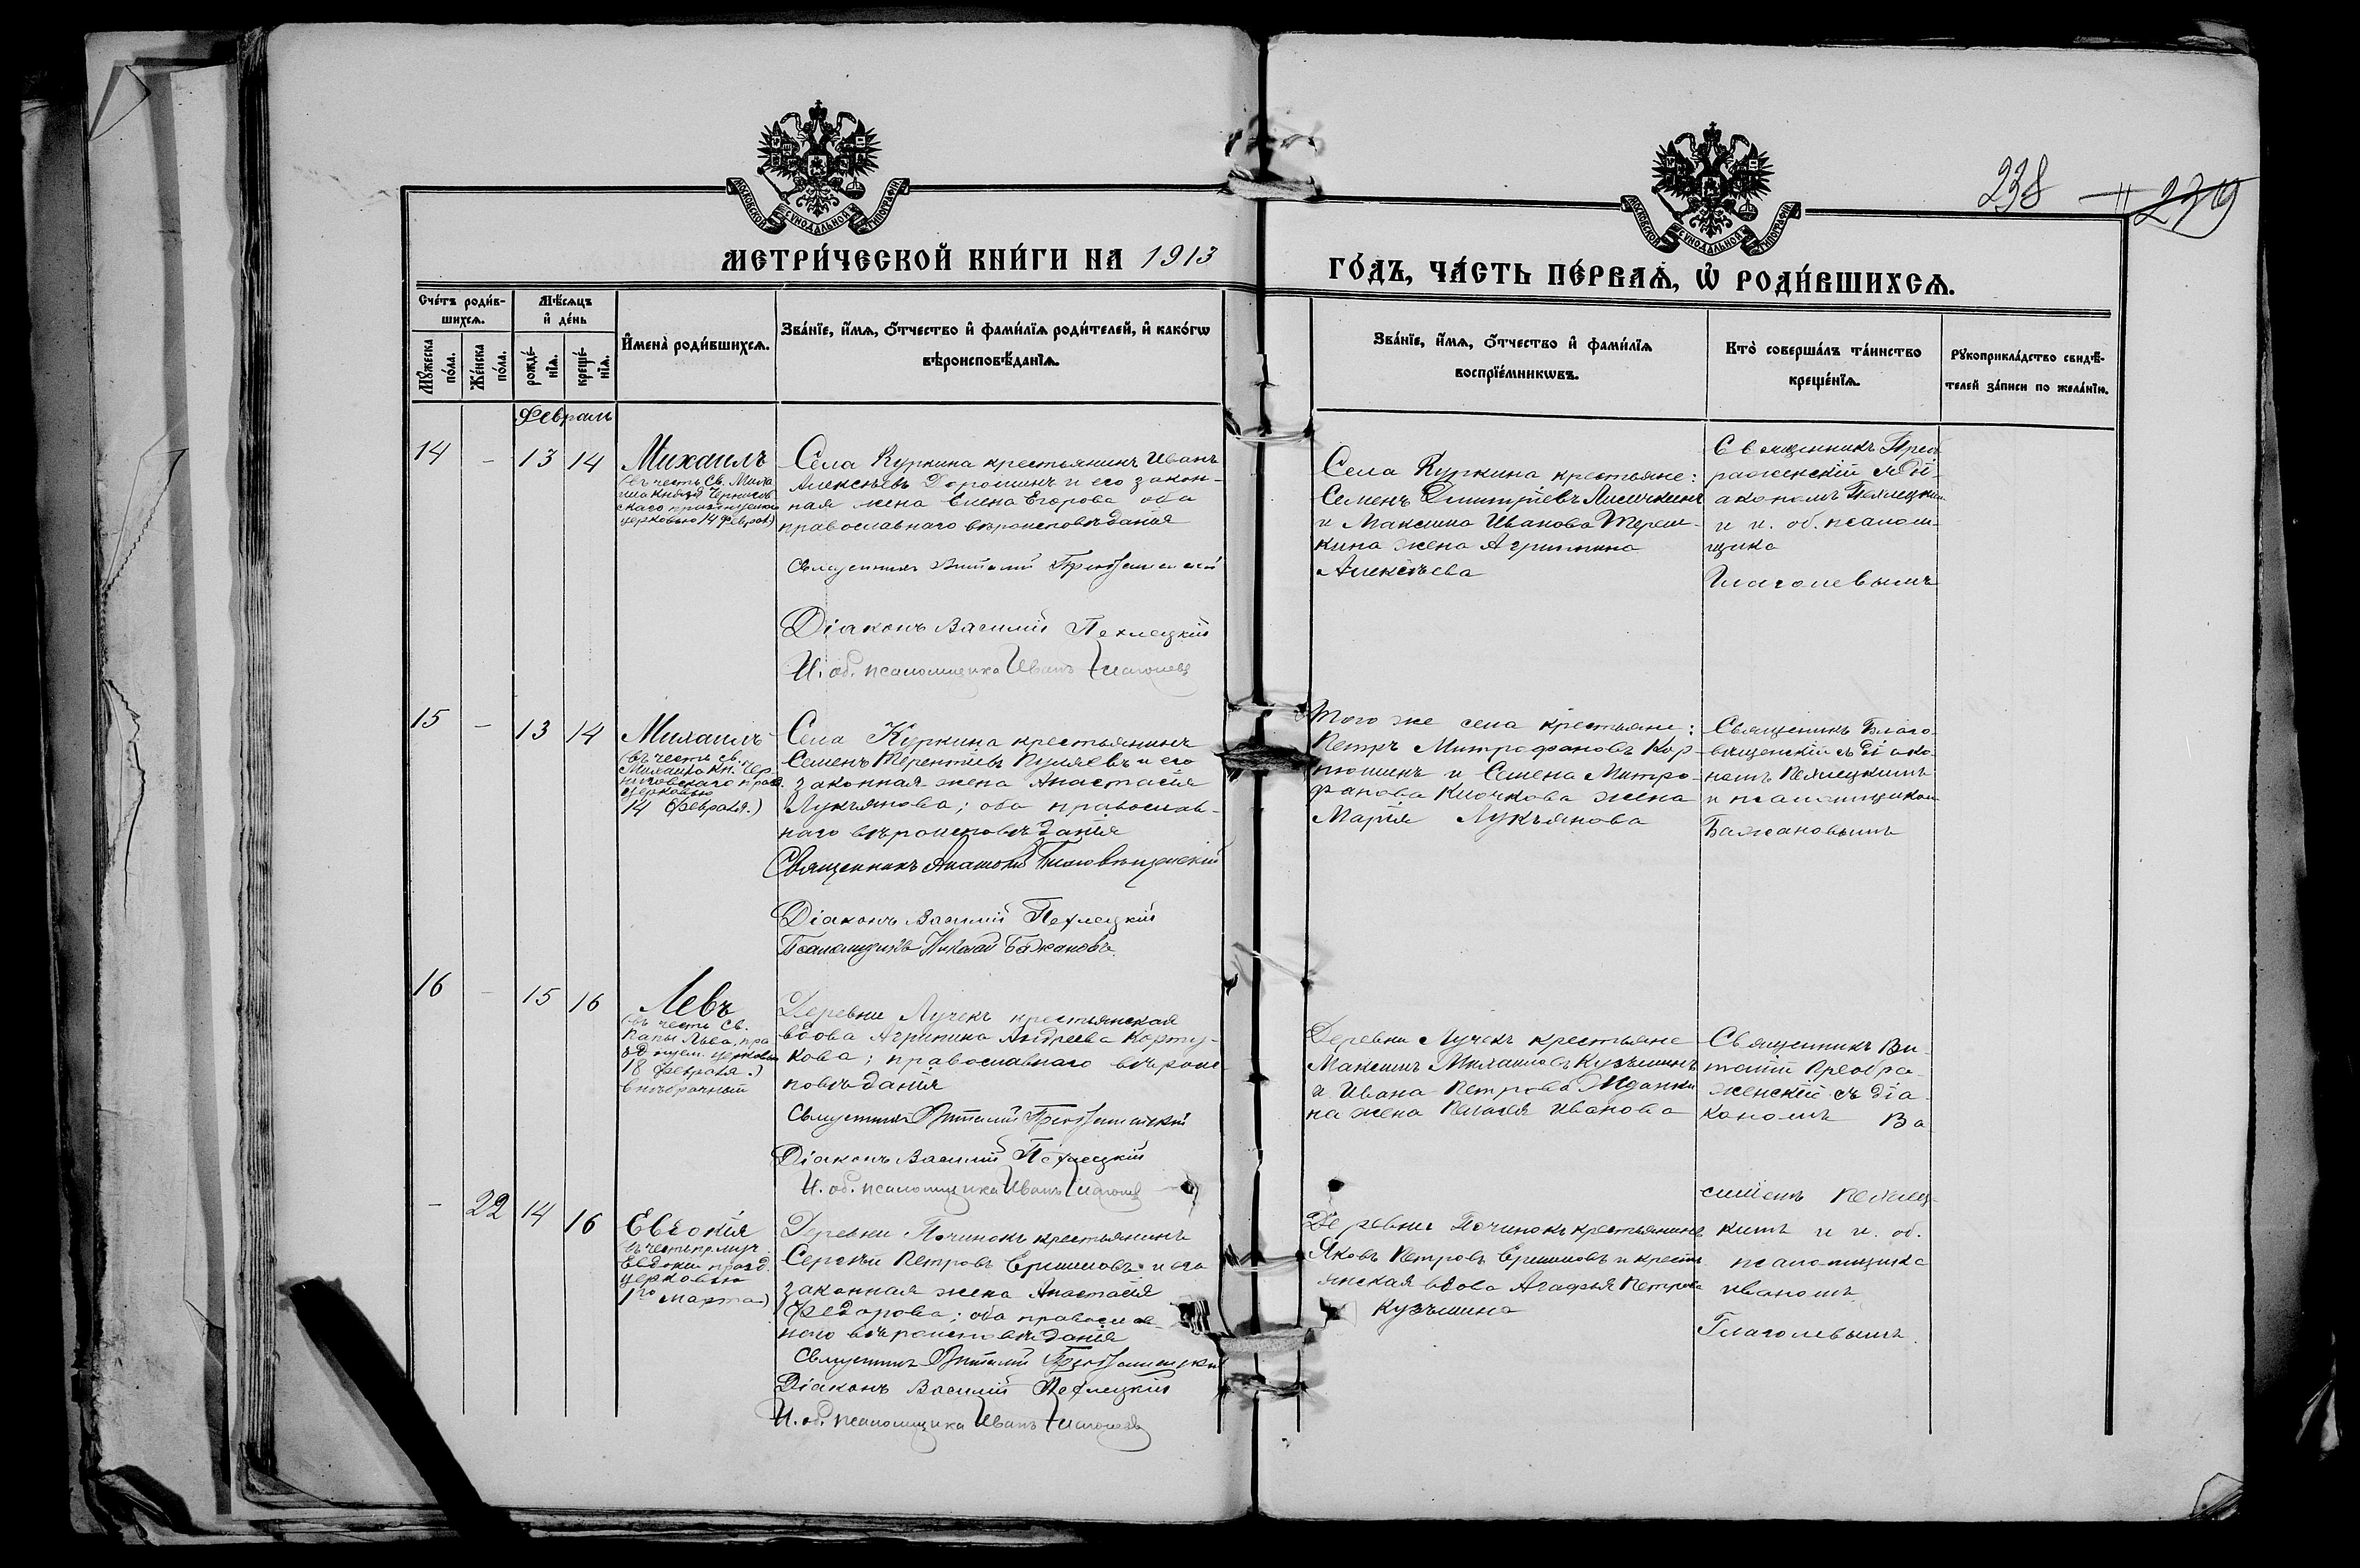 238 279
МОСКОВСКОЙ СѴНОДАЛЬНОЙ ТИПОГРАФІИ
МОСКОВСКОЙ СѴНОДАЛЬНОЙ ТИПОГРАФІИ
МЕТРИ́ЧЕСКОЙ КНИ́ГИ НА 1913
ГО́ДЪ, ЧА́СТЬ ПЕ́РВАѦ, Ѿ РОДИ́ВШИХСѦ.
Сче́тъ роди́в-
шихсѧ.
Мѣ́сѧцъ
и҆ де́нь
Мꙋ́жеска
по́ла.
Же́нска
по́ла.
рожде́-
нїѧ.
креще́-
нїѧ.
И҆мена̀ роди́вшихсѧ.
Зва́нїе, и҆́мѧ, ѻ҆́тчество и҆ фами́лїѧ роди́телей, и҆ како́гѡ
вѣроисповѣ́данїѧ.
Зва́нїе, и҆́мѧ, ѻ҆́тчество и҆ фами́лїѧ
воспрїе́мникѡвъ.
Кто̀ соверша́лъ та́инство
креще́нїѧ.
Рꙋкоприкла́дство свидѣ́-
телей за́писи по жела́нїю.
Февраль
14 - 13 14 Михаилъ
(въ честь Св. Миха
ила Князя Чернигов
скаго празднуемаго
церковью 14 Феврал)
Села Куркина крестьянинъ Иванъ
Алексѣевъ Дорошинъ и его закон-
ная жена Елена Егорова оба
православнаго вѣроисповѣданія
Священникъ Виталій Преображенскій
Діаконъ Василій Пехлецкій
И. об. псаломщика Иванъ Глаголевъ
Села Куркина крестьяне:
Семенъ Димитріевъ Лисичкинъ
и Максима Иванова Тереш-
кина жена Агриппина
Алексѣева
Священникъ Преоб
раженскій съ Ді-
акономъ Пехлецким
и и. об. псалом-
щика
Глаголевымъ
15 - 13 14 Михаилъ
(въ честь св.
Михаила Кн. Чер-
ниговскаго празд.
церковью
14 Февраля.)
Села Куркина крестьянинъ
Семенъ Терентіевъ Куляевъ и его
законная жена Анастасія
Лукьянова; оба православ-
наго вѣроисповѣданія
Священникъ Анатолій Благовѣщенскій
Діаконъ Василій Пехлецкій
Псаломщикъ Николай Бажановъ.
Того же села крестьяне:
Петръ Митрофановъ Кор-
тошинъ и Семена Митро-
фанова Клочкова жена
Марія Лукьянова
Священикъ Благо-
вѣщенскій съ діако-
номъ Пехлецкимъ
и псаломщиком
Бажановымъ
16 - 15 16 Левъ
(въ честь Св.
Папы Льва, пра
зднуем. церковью
18 Февраля.)
внѣбрачный
Деревни Лучекъ крестьянская
вдова Агрипина Андреева Корту-
кова; православнаго вѣроис-
повѣданія
Священникъ Виталій Преображенскій
Діаконъ Василій Пехлецкій
И. об. псаломщика Иванъ Глаголев
Деревни Лучекъ крестьяне
Максимъ Михаиловъ Кузьминъ
и Ивана Петрова Жданки
на жена Пелагея Иванова
Священникъ Ви-
талій Преобра-
женскій съ діа-
кономъ Ва
силіемъ Пехлец-
кимъ и и. об.
псаломщика
Иваномъ
Глаголевымъ.
- 22 14 16 Евдокія
(въ честь прмуч.
Евдокіи празд.
церковью
1го марта)
Деревни Починокъ крестьянинъ
Сергѣй Петровъ Ершиловъ и его
законная жена Анастасія
Федорова; оба православ-
наго вѣроисповѣданія
Священникъ Виталій Преображенскій
Діаконъ Василій Пехлецкій
И. об. псаломщика Иванъ Глаголевъ
Деревни Починокъ крестьянинъ
Яковъ Петровъ Ершиловъ и кресть
янская вдова Агафья Петрова
Кузьмина